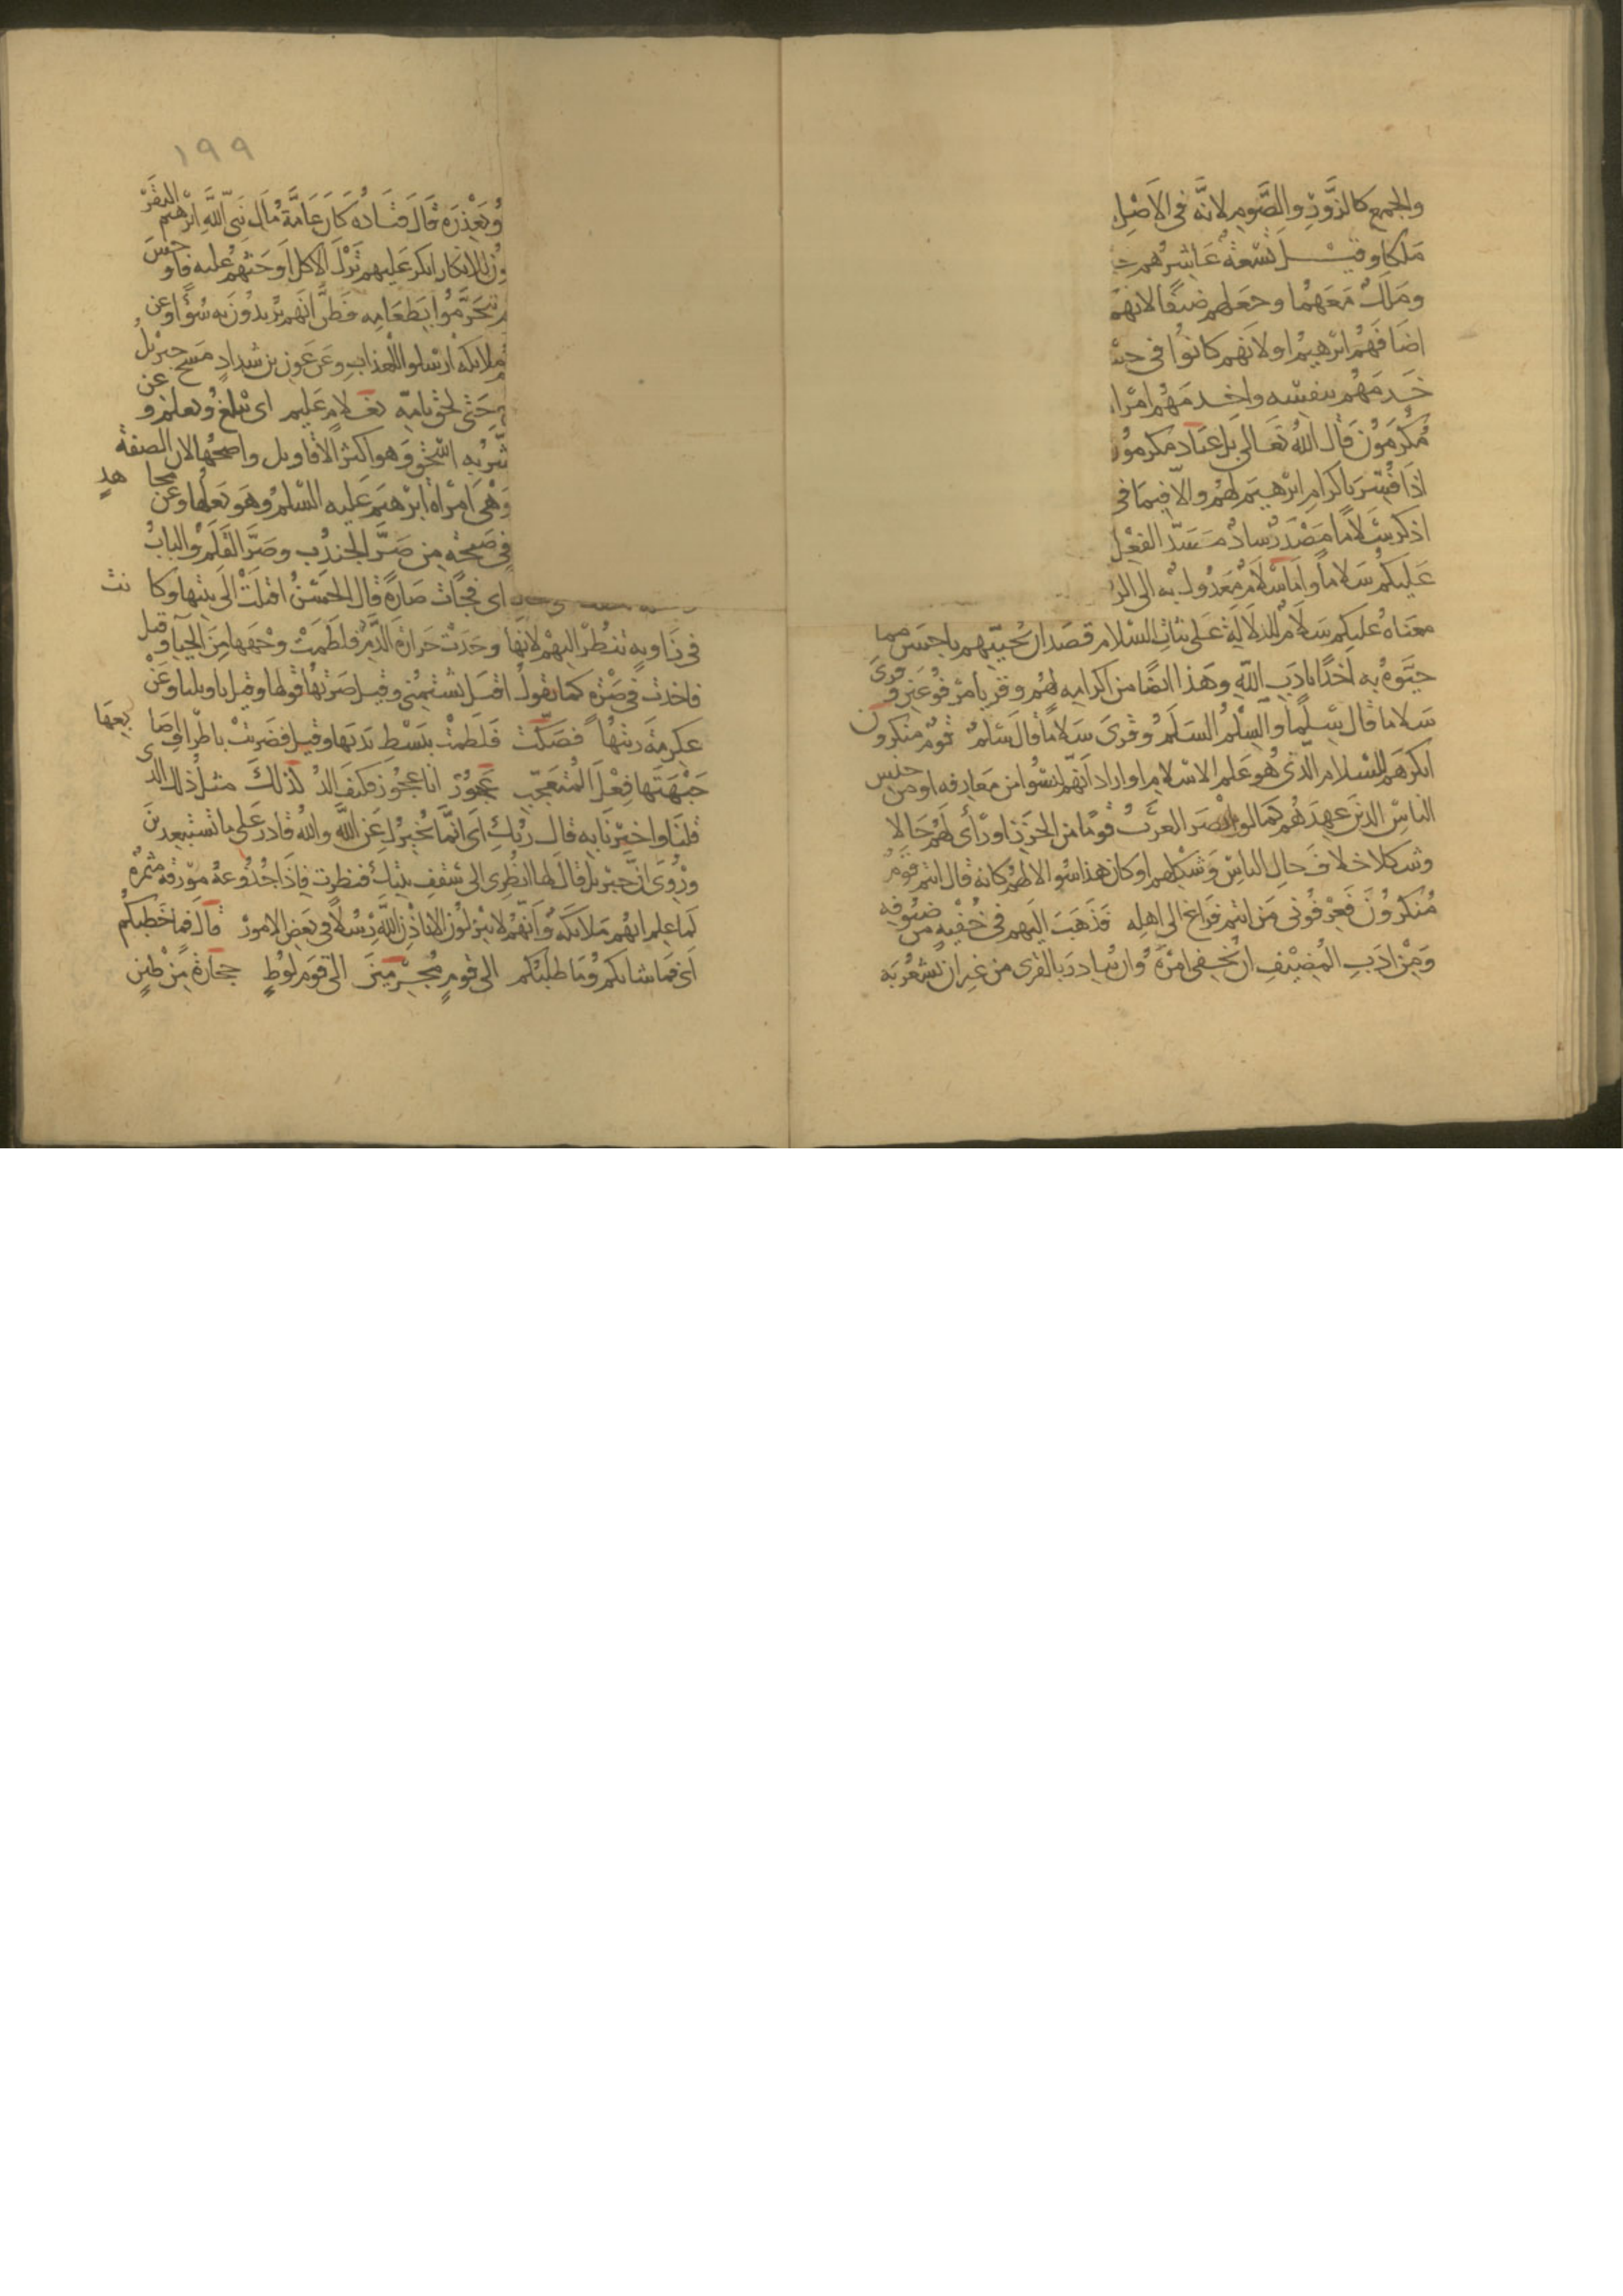 والجمع كالزور والصوم لانه في الاصل
ملكا وقيل تسعة عاشرهم
وملك معهما وجعلهم ضيفا لانهم
اضافهم ابرهيم او لانهم كانوا في
خدمهم بنفسه واخدمهم امرا
مكرمون قال الله تعالى بل عباد مكرمون
اذا فسر باكرام ابرهيم لهم والا فيما في
اذكر سلاما مصدر ساد مسد الفعل
عليكم سلاما واما سلام معدول به الى الر
معناه عليكم سلام للدلالة على ثبات السلام قصد ان يحييهم باحسن مما
حيوه به اخذا بادب الله وهذا ايضا من اكرامه لهم وقريا مرفوعين وقرئ
سلاما قال سلما والسلم السلم وقرئ سلاما قال سلم قوم منكرون
انكرهم للسلام الذي هو علم الاسلام او اراد انهم ليسوا من معارفه او من جنس
الناس الذين عهدهم كما لو ابصر العرب قوما من الخزر او رأى لهم حالا
وشكلا خلاف حال الناس وشكلهم او كان هذا سوالا لهم كانه قال انتم قوم
منكرون فعرفوني من انتم فراغ الى اهله فذهب اليهم في خفية من ضيوفه
ومن ادب المضيف ان يخفي امره وان يبادر بالقرى من غير ان يشعر به
١٩٩
ويعذره قال قتادة كان عامة مال نبي الله ابرهيم البقر
للانكار انكر عليهم ترك الاكل او حثهم عليه فاوجس
يتحرموا بطعامه فظن انهم يريدون به سوءا وعن
ملايكة ارسلوا للعذاب وعن عون بن شداد مسح جبريل
حتى لحق بامه بغلام عليم اي يبلغ ويعلم وعن
به اسحق وهو اكثر الاقاويل واصحها لان الصفة
وهي امراة ابرهيم عليه السلم وهو بعلها وعن مجاهد
في صيحة من صر الجندب وصر القلم والباب
اي فجات صارة قال الحسن اقبلت الى بيتها وكانت
في زاوية تنظر اليهم لانها وجدت حرارة الدم فلطمت وجهها من الحياء وقيل
فاخذت في صرة كما تقول اقبل يشتمني وقيل صرتها قولها وقيل ياويلتا وعن
عكرمة رنتها فصكت فلطمت ببسط يديها وقيل فضربت باطراف اصابعها
جبهتها فعل المتعجب عجوز انا عجوز فكيف الد كذلك مثل ذلك الذي
قلنا واخبرنا به قال ربك اي انما نخبرك عن الله والله قادر على ما تستبعدين
وروي ان جبريل قال لها انظري الى سقف بيتك فنظرت فاذا جذوعه مورقة مثمرة
لما علم انهم ملايكة وانهم لا ينزلون الا باذن الله رسلا في بعض الامور قال فما خطبكم
اي فما شانكم وما طلبكم الى قوم مجرمين الى قوم لوط حجارة من طين